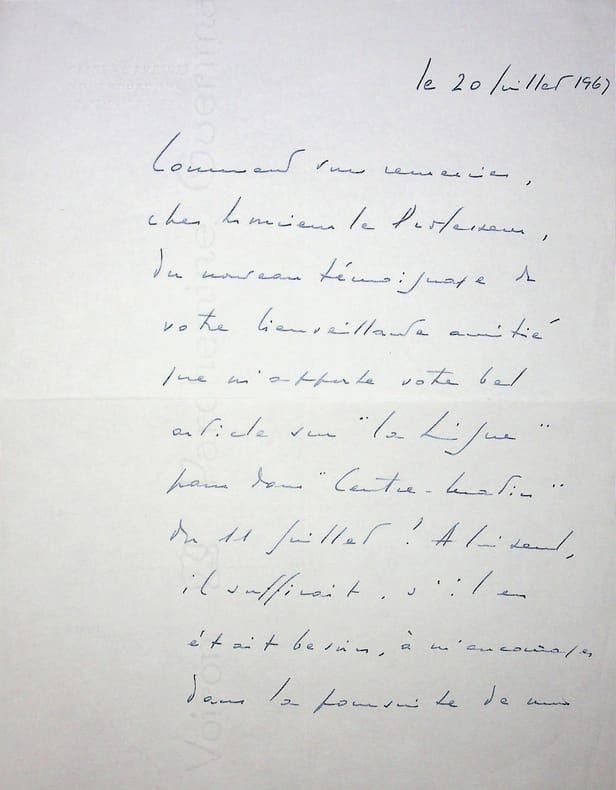 le 20 Juillet 1967
Comment vous remercier,
cher Monsieur le Professeur,
du nouveau témoignage de
votre bienveillante amitié
que m'apporte votre bel
article sur "la Ligue"
paru dans "Centre-Matin"
du 11 Juillet ! A lui seul,
il suffirait, s'il en
était besoin, à m'encourager
dans la poursuite de mes